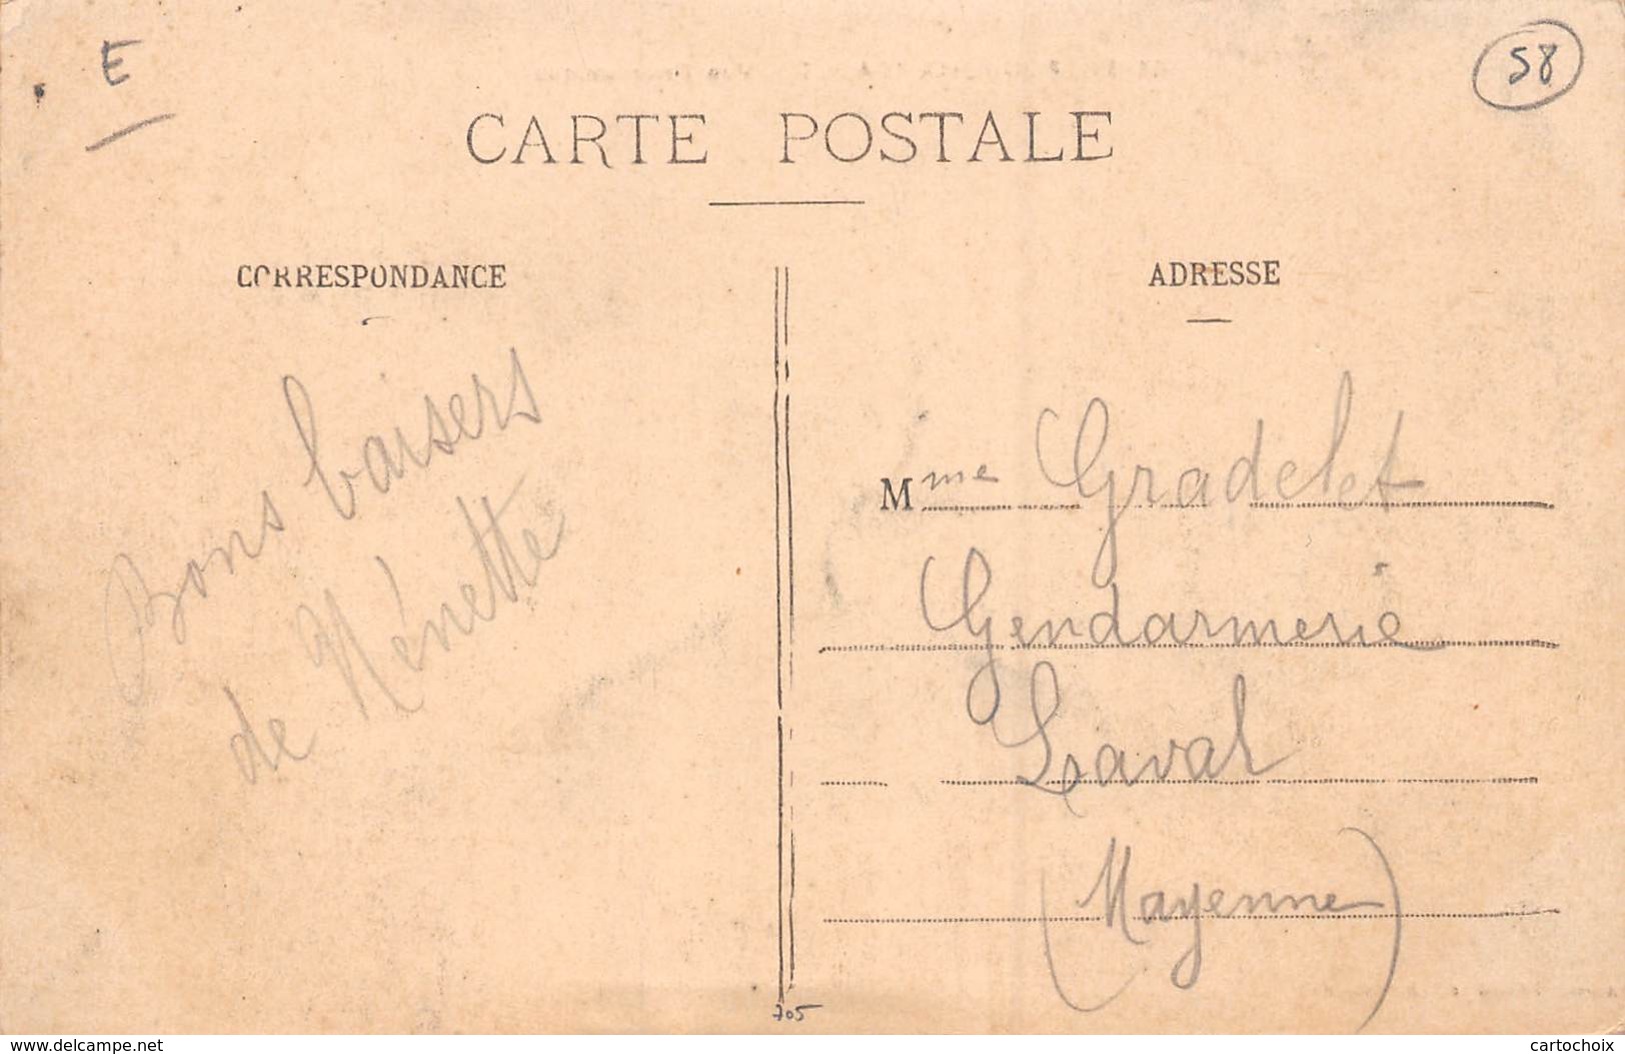 E
58
CARTE POSTALE
CORRESPONDANCE
Bons baisers
de Nénette
ADRESSE
Mme Gradelet
Gendarmerie
Laval
(Mayenne)
705
www.delcampe.net
cartochoix